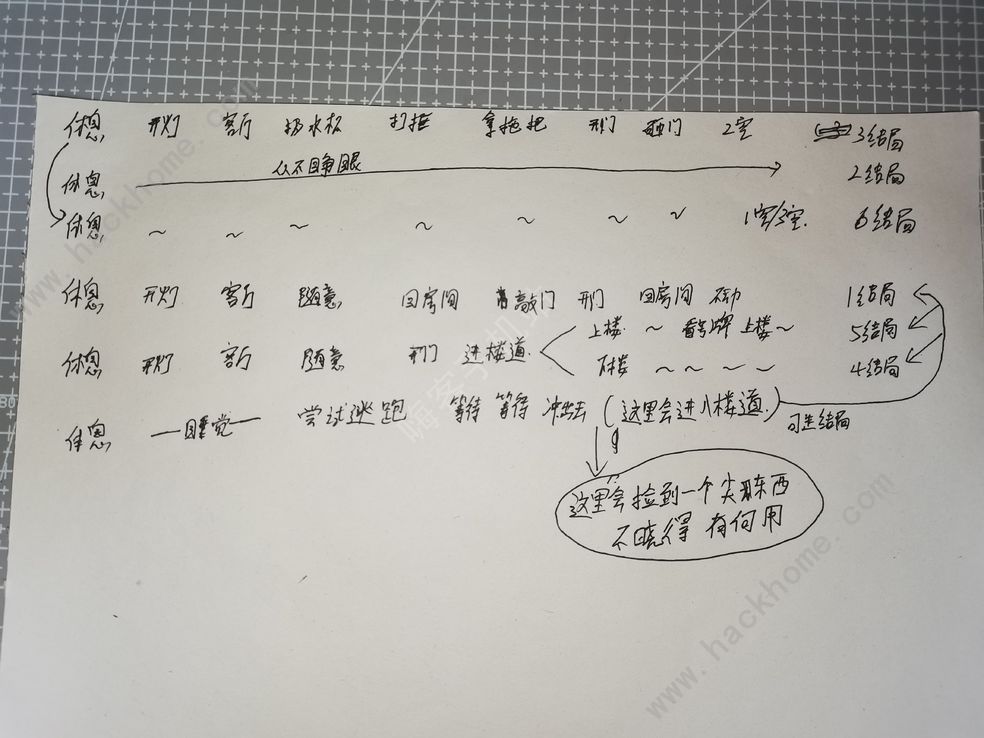 休息 开灯 客厅 打拒 拿拖把 开门 2空 3结局
休息 从不睁眼 2结局
休息 ~ ~ ~ ~ ~ ~ ~ 6结局
休息 开灯 客厅 随意 回房间 敲门 开门 回房间 1结局
上楼 ~ 上楼~ 5结局
休息 开灯 客厅 随意 开门 进楼道
下楼 ~ ~ ~ ~ 4结局
休息 —睡觉— 尝试逃跑 等待 等待 冲出去 (这里会进入楼道) 可选结局
这里会捡到一个尖东西
不晓得 有何用
www.hackhome.com
嗨客手机站
www.hackhome.com